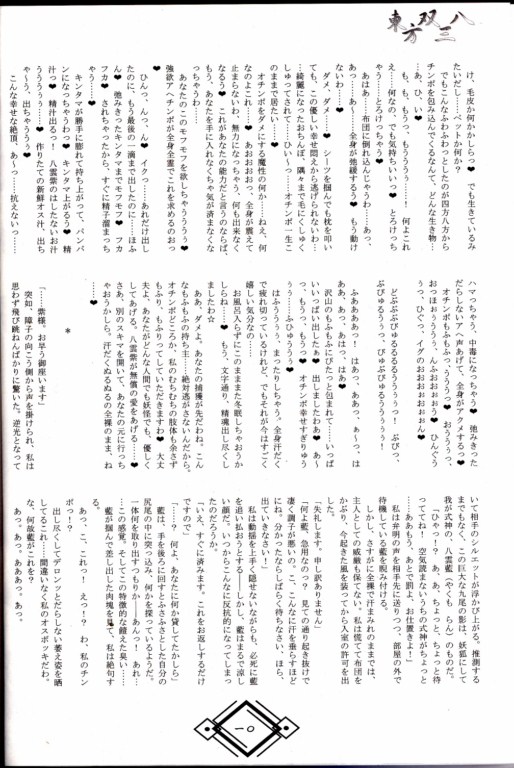 東方双八三
け、毛皮か何かしらっ❤ でも生きているみ
たいだし……ペットか何か？
でもこんなふわふわっとしたのが四方八方から
チンポを包み込んでくるなんて、どんな生き物…
あ、ひ、い❤
も、もううっ、もううううぅ……何よこれ
え……何なの、でも気持ちいいっ❤ とろけっち
ゃう……とろけっちゃう❤
あはぁ……お布団に倒れ込んじゃうわ……あっ、
あっ…あ、あーっ……全身が弛緩するぅ❤ もう動け
ないわ……❤
ダメ、ダメ……❤ シーツを掴んでも枕を叩い
ても、この優しい幸せ悶えから逃げられないわ…
…綺麗になったおちんぽ、隅々まで毛にくしゅく
しゅってされて……ひぃーっ……オチンポ一生こ
のままで居たいぃ……❤
オチンポをダメにする魔性の何か……ねえ、何
なのよこれ……❤ あおおおおっ、全身が震えて
止まらないわ、無力になっちゃう、何も出来なく
なるぅ❤ これがあなたの能力だと言うのならば、
もう、あなたを手に入れなくちゃ気が済まなくな
っちゃうわ……❤
あなたのこのモフモフを欲しちゃうううぅ❤
強欲アヘチンポが全身全霊でこれを求めるのおっ
❤
ひんっ、んっ、ん❤ イクっ……あれだけ出し
たのに、もう最後の一滴まで出したのに……ほふ
ん❤ 弛みきったキンタマまでモフモフ❤ フカ
フカ❤ されちゃったから、すぐに精子溜まっち
ゃう……❤
キンタマが勝手に膨れて持ち上がって、パンパ
ンになっちゃうわっ❤ キンタマ上がるう❤ 精
汁っ❤ 精汁出るっ！ 八雲紫のはしたないお汁
うううう……❤ 作りたての新鮮オス汁、出ち
ゃーう、出ちゃうううう❤
こんな幸せな絶頂、あーっ……抗えないっ……
ハマっちゃう、中毒になっちゃう❤ 弛みきった
だらしないアヘ声あげて、全身がアクメするっ❤
オチンポもふもふっ、ううう、うっ、うおぉおっ、
おっほぉぅうううっ、んふぉおぉぉ❤ ひんぐう
ぅっ、ひぐっ、イグのおおおぉおぉぉん❤
どぶぶぶびゅるるるるるうううぅっ！ ぶびっ、
ぶびゅるうぅっ、びゅぶびゅるううぅうぅ！
ふあああぁあーっ！ はあっ、ああっ、ぁーっ、は
ああ、あっ、あはっ、はぁ❤
沢山のもふもふにびたっと包まれて……いっぱ
いいっぱい出したぁ❤ 出しましたわあ、あー
っ、もうっ、もううっ❤ オチンポ幸せすぎりゅう
ぅぅ……ふひゅうううぅ❤
はふうううぅ、まったりしちゃう。全身汗だく
で疲れ切っているけれど、でもそれが今はすごく
嬉しい気分なの……❤
お風呂入らずにこのまままたを眠しちゃおうか
しらねぇ……❤ もう、文字通り、精魂出し尽くし
ましたわ☆
ああ、ダメよ、あなたの捕獲が先だわね。こん
なもふもふの持ち主……絶対逃がさないんだから、
オチンポどころか、私のむちむちの肢体も余さず
もふり、もふりってしていただきますわ❤ 大丈
夫よ、あなたがどんな人間でも妖怪でも、優しく
してあげる。八雲紫が無償の愛をあげる❤
さあ、別のスキマを開いて、あなたの元に行っち
ゃおうかしら。汗だくぬるぬるの全裸のまま、ね
……❤
＊
「――紫様。お早う御座います」
突如、障子の向こう側から声を掛けられ、私は
思わず飛び跳ねんばかりに驚いた。逆光となって
いて相手のシルエットが浮かび上がる。推測する
までもなく、この巨大な九尾の影は、妖狐にして
我が式神の、八雲藍（やくも らん）のものだ。
「ひゃっ!? あ、藍？ あっ、ちょっと、ちょっと待
っててね！ 空気読まないうちの式神がちょっと
……ああもう、あとで罰よ、お仕置きよ！」
私は弁明の声を相手先に送りつつ、部屋の外で
待機している藍を睨み付ける。
しかし、さすがに全裸で汗まみれのままでは、
主人としての威厳も保てない。私は慌てて布団を
かぶり、今起きた風を装ってから入室の許可を出
す。
「失礼します。申し訳ありません」
「何よ藍、急用なのっ？ 見ての通り起き抜けで
凄く調子が悪いの、こ、こんなに汗を垂らすほど
にね。分かったならしばらく待ちなさい、ほら、
出ていきなさい！」
私は動揺を上手く隠せないながらも、必死に藍
を追い払おうとする――しかし、藍はまるで涼し
い顔だ。いつからこんなに反抗的になってしまっ
たのだろうか。
「いえ、すぐに済みます。これをお返しするだけ
ですので」
「……？ 何よ、あなたに何か貸してたかしら」
藍は、手を後ろに回すとふさふさとした自分の
尻尾の中に突っ込み、何かを探っているようだ。
一体何を取り出すつもりか――あんっ！ あれ…
…この感覚。そしてこの特徴的な饐えた臭い……
藍が掴んで差し出した肉塊を見て、私は絶句す
る。
あっ、こ、これっ！ えっ!? わ、私のチン
ポっ!?
出し尽くしてデロンッとだらしない萎え姿を晒
してるこれ……間違いなく私のオスボッキだわ。
な、何故藍がこれを？
あっ。あっ、ああああっ、あっ。
一〇